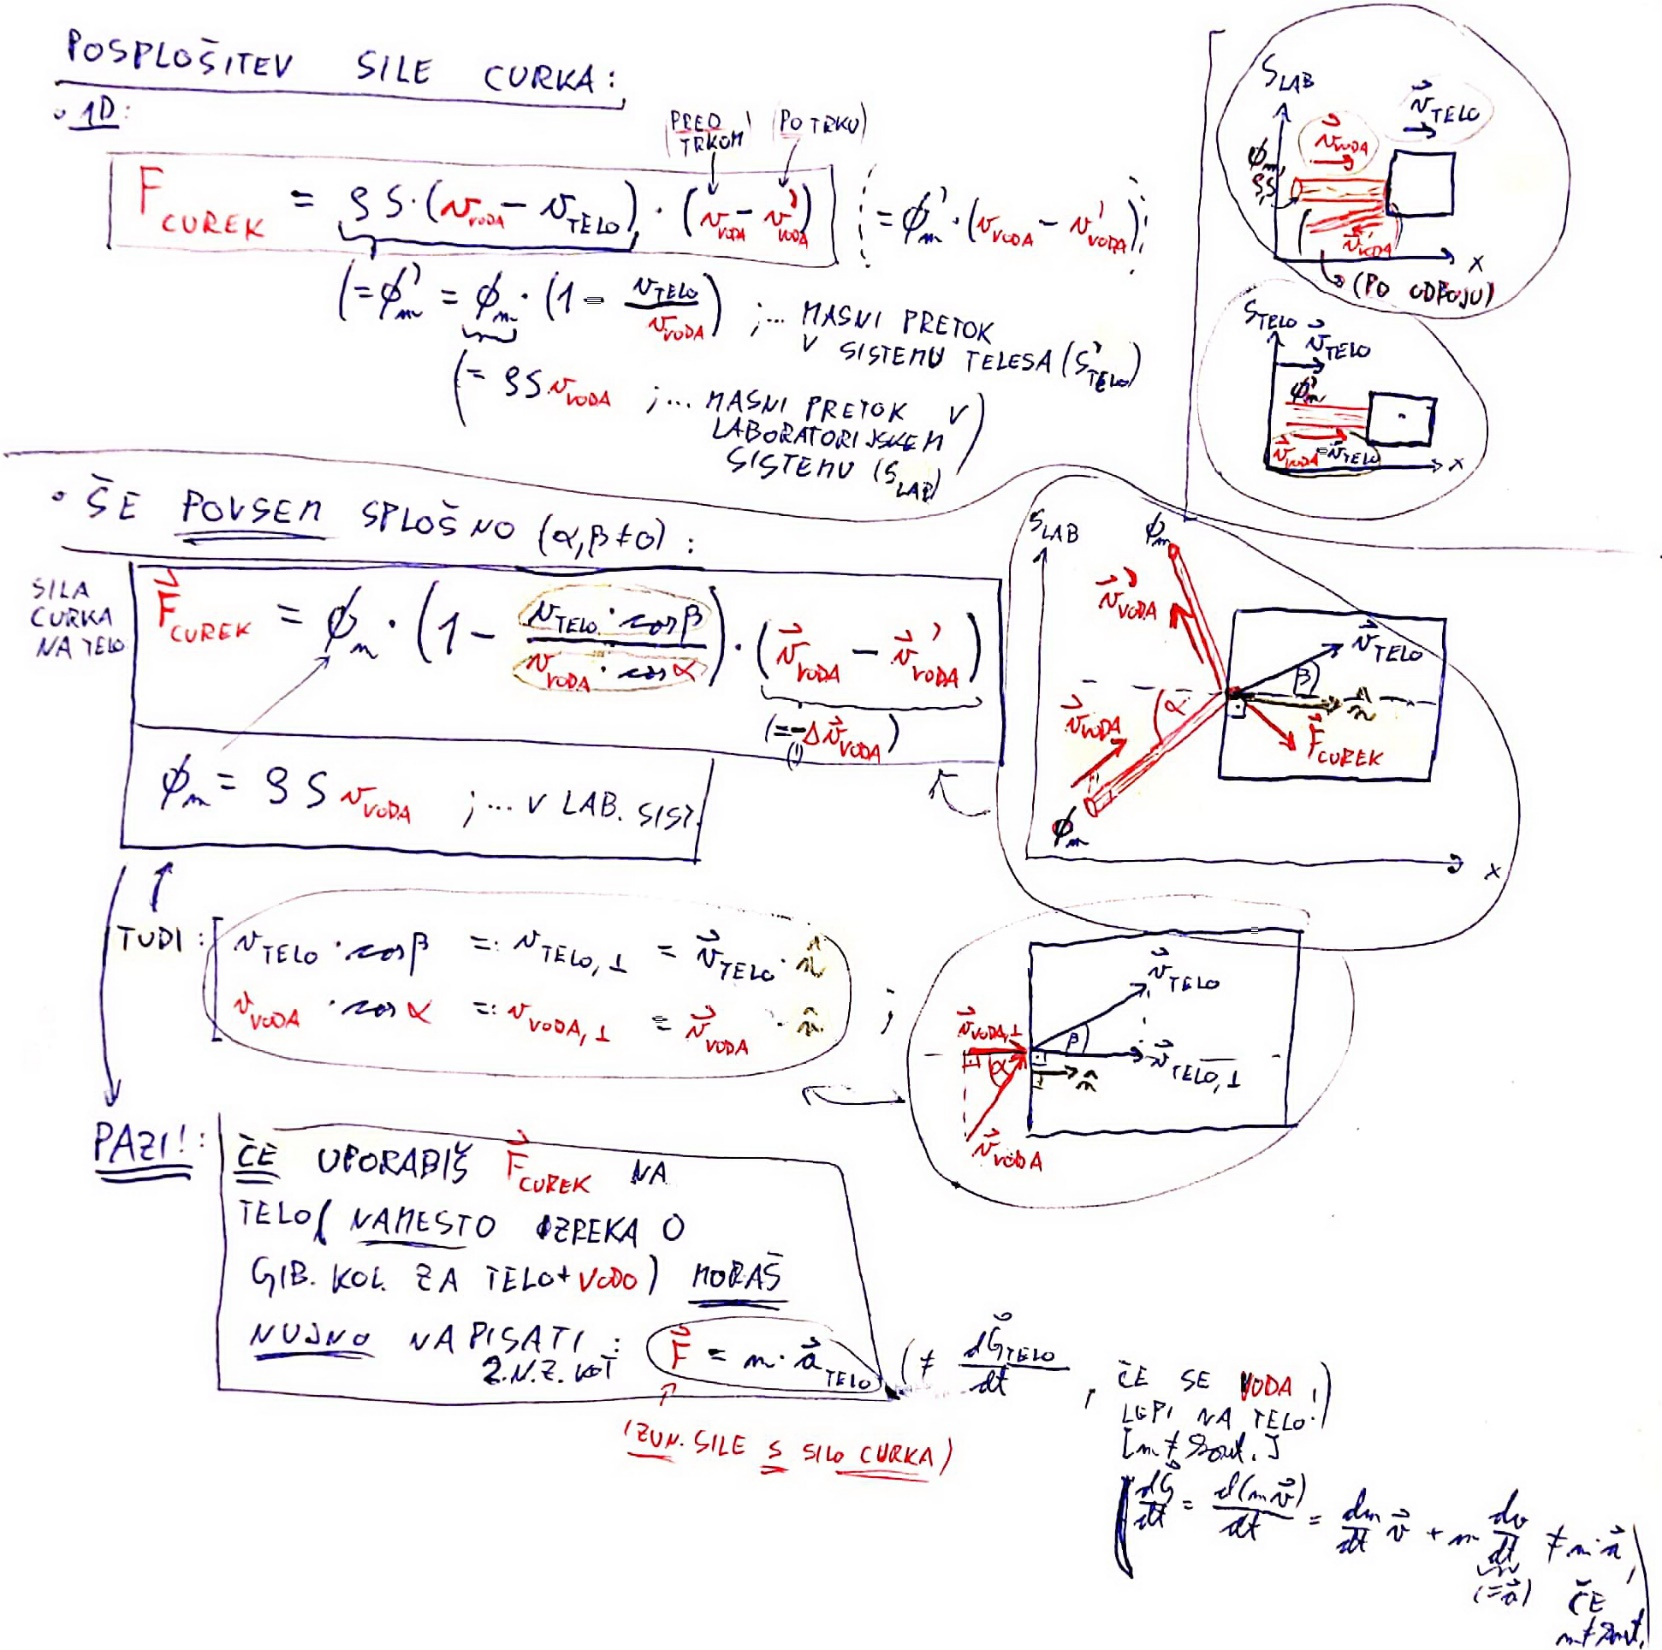 POSPLOŠITEV SILE CURKA:
• 1D:
(PRED TRKOM) (PO TRKU)
F_CUREK = ρ S · (v_VODA − v_TELO) · (v_VODA − v'_VODA) (= ϕ'_m · (v_VODA − v'_VODA))
(= ϕ'_m = ϕ_m · (1 − v_TELO / v_VODA) ;... MASNI PRETOK
V SISTEMU TELESA (S'_TELO)
(= ρ S v_VODA ;... MASNI PRETOK V
LABORATORIJSKEM
SISTEMU (S_LAB)
S_LAB
v⃗_TELO
v⃗_VODA
ϕ_m
ρS
v⃗'_VODA
x
(PO ODBOJU)
S_TELO
v⃗_TELO
ϕ'_m
v⃗_VODA − v⃗_TELO
x
• ŠE POVSEM SPLOŠNO (α, β ≠ 0) :
SILA
CURKA
NA TELO
F⃗_CUREK = ϕ_m · (1 − v_TELO · cos β / v_VODA · cos α) · (v⃗_VODA − v⃗'_VODA)
(= −Δv⃗_VODA)
(!)
ϕ_m = ρ S v_VODA ;... V LAB. SIST.
S_LAB
ϕ_m
v⃗'_VODA
v⃗_TELO
β
n̂
α
v⃗_VODA
F⃗_CUREK
ϕ_m
x
TUDI : [ v_TELO · cos β =: v_TELO,⊥ = v⃗_TELO · n̂
v_VODA · cos α =: v_VODA,⊥ = v⃗_VODA · n̂ ;
v⃗_TELO
v⃗_VODA,⊥
β
α
v⃗_TELO,⊥
n̂
v⃗_VODA
PAZI! : ČE UPORABIŠ F⃗_CUREK NA
TELO (NAMESTO IZREKA O
GIB. KOL. ZA TELO + VODO) MORAŠ
NUJNO NAPISATI :
2.N.Z. KOT F⃗ = m · a⃗_TELO (≠ dG⃗_TELO / dt , ČE SE VODA
LEPI NA TELO!)
[m ≠ konst.]
(IZUN. SILE S SILO CURKA)
(dG⃗/dt = d(mv⃗)/dt = dm/dt v⃗ + m dv/dt ≠ m·a⃗,
(= a⃗) ČE
m ≠ konst.)